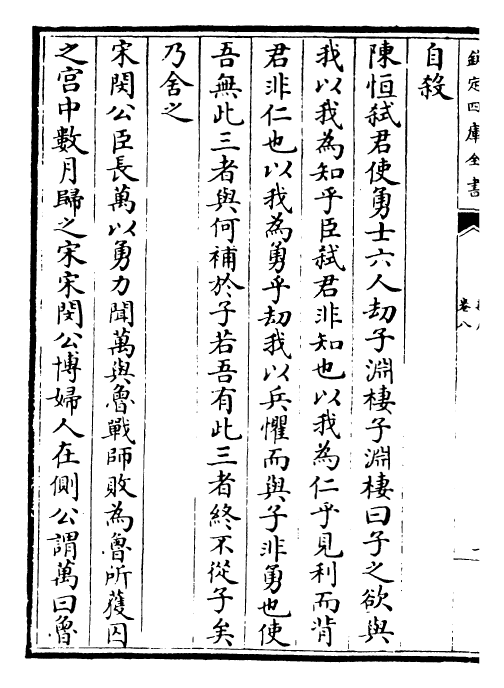 欽定四庫全書
卷八
自殺
陳恒弑君使勇士六人劫子淵棲子淵棲曰子之欲與
我以我為知乎臣弑君非知也以我為仁乎見利而背
君非仁也以我為勇乎劫我以兵懼而與子非勇也使
吾無此三者與何補於子若吾有此三者終不從子矣
乃舍之
宋閔公臣長萬以勇力聞萬與魯戰師敗為魯所獲囚
之宫中數月歸之宋宋閔公博婦人在側公謂萬曰魯